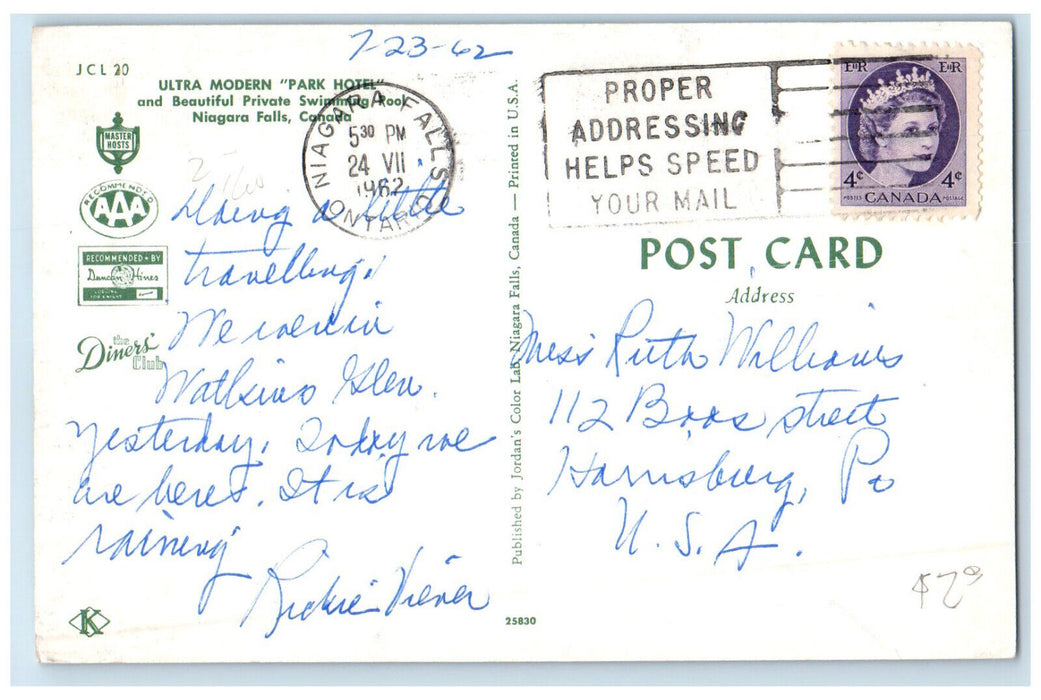 7-23-62
JCL 20
ULTRA MODERN "PARK HOTEL"
and Beautiful Private Swimming Pool
Niagara Falls, Canada
MASTER
HOSTS
RECOMMENDED
AAA
RECOMMENDED BY
Duncan Hines
the
Diners'
Club
NIAGARA FALLS
5 30 PM
24 VII
1962
ONTARIO
PROPER
ADDRESSING
HELPS SPEED
YOUR MAIL
EIIR EIIR
4¢ 4¢
POSTES CANADA POSTAGE
Doing a little
travelling.
We were in
Watkins Glen.
Yesterday. Today we
are here. It is
raining
Rickie
K
Published by Jordan's Color Lab, Niagara Falls, Canada — Printed in U.S.A.
25830
POST CARD
Address
Miss Ruth Williams
112 Boas street
Harrisburg, Pa
U.S.A.